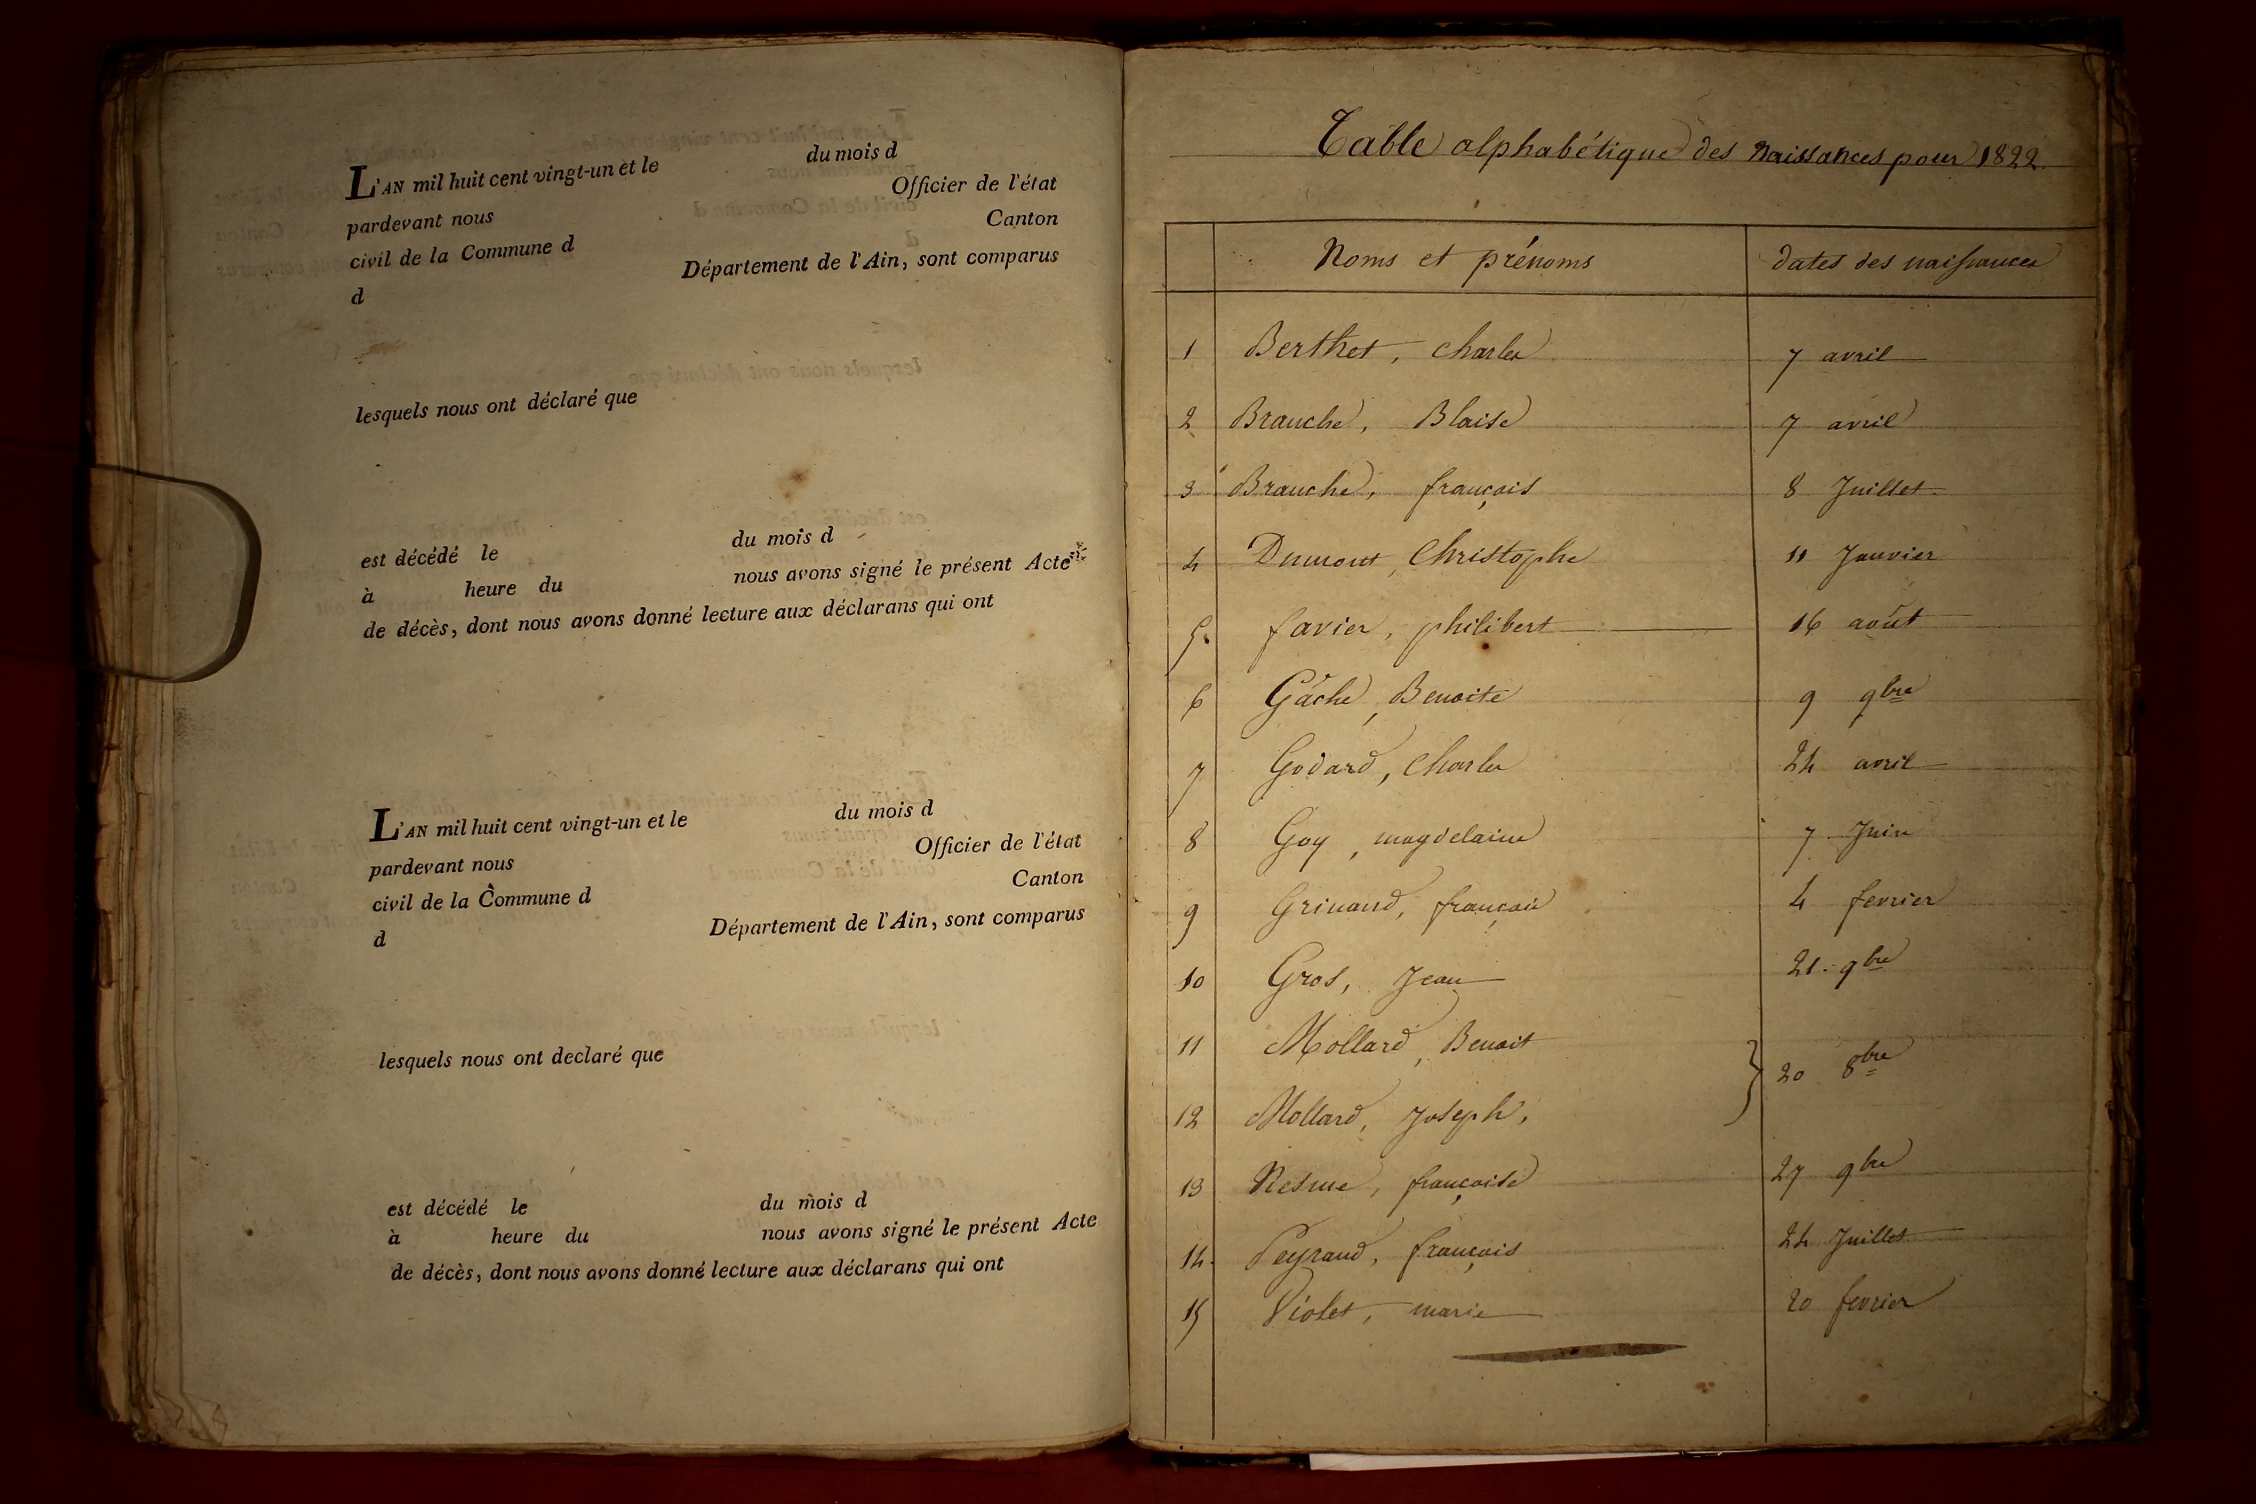 L'AN mil huit cent vingt-un et le du mois d
pardevant nous Officier de l'état
civil de la Commune d Canton
d Département de l'Ain, sont comparus
lesquels nous ont déclaré que
est décédé le du mois d
à heure du nous avons signé le présent Acte
de décès, dont nous avons donné lecture aux déclarans qui ont
L'AN mil huit cent vingt-un et le du mois d
pardevant nous Officier de l'état
civil de la Commune d Canton
d Département de l'Ain, sont comparus
lesquels nous ont declaré que
est décédé le du mois d
à heure du nous avons signé le présent Acte
de décès, dont nous avons donné lecture aux déclarans qui ont
Table alphabétique des naissances pour 1822.
Noms et prénoms dates des naissances
1 Berthet, Charles 7 avril
2 Branche, Blaise 7 avril
3 Branche, françois 8 Juillet
4 Dumont, Christophe 11 Janvier
5. favier, philibert 16 août
6 Gâche, Benoite 9 9bre
7 Godard, Charles 24 avril
8 Goy, magdelaine 7 Juin
9 Grinand, françois 4 fevrier
10 Gros, Jean 21 9bre
11 Mollard, Benoit
20 8bre
12 Mollard, Joseph,
13 Nesme, françoise 27 9bre
14. Peyraud, françois 24 Juillet
15 Violet, marie 20 fevrier